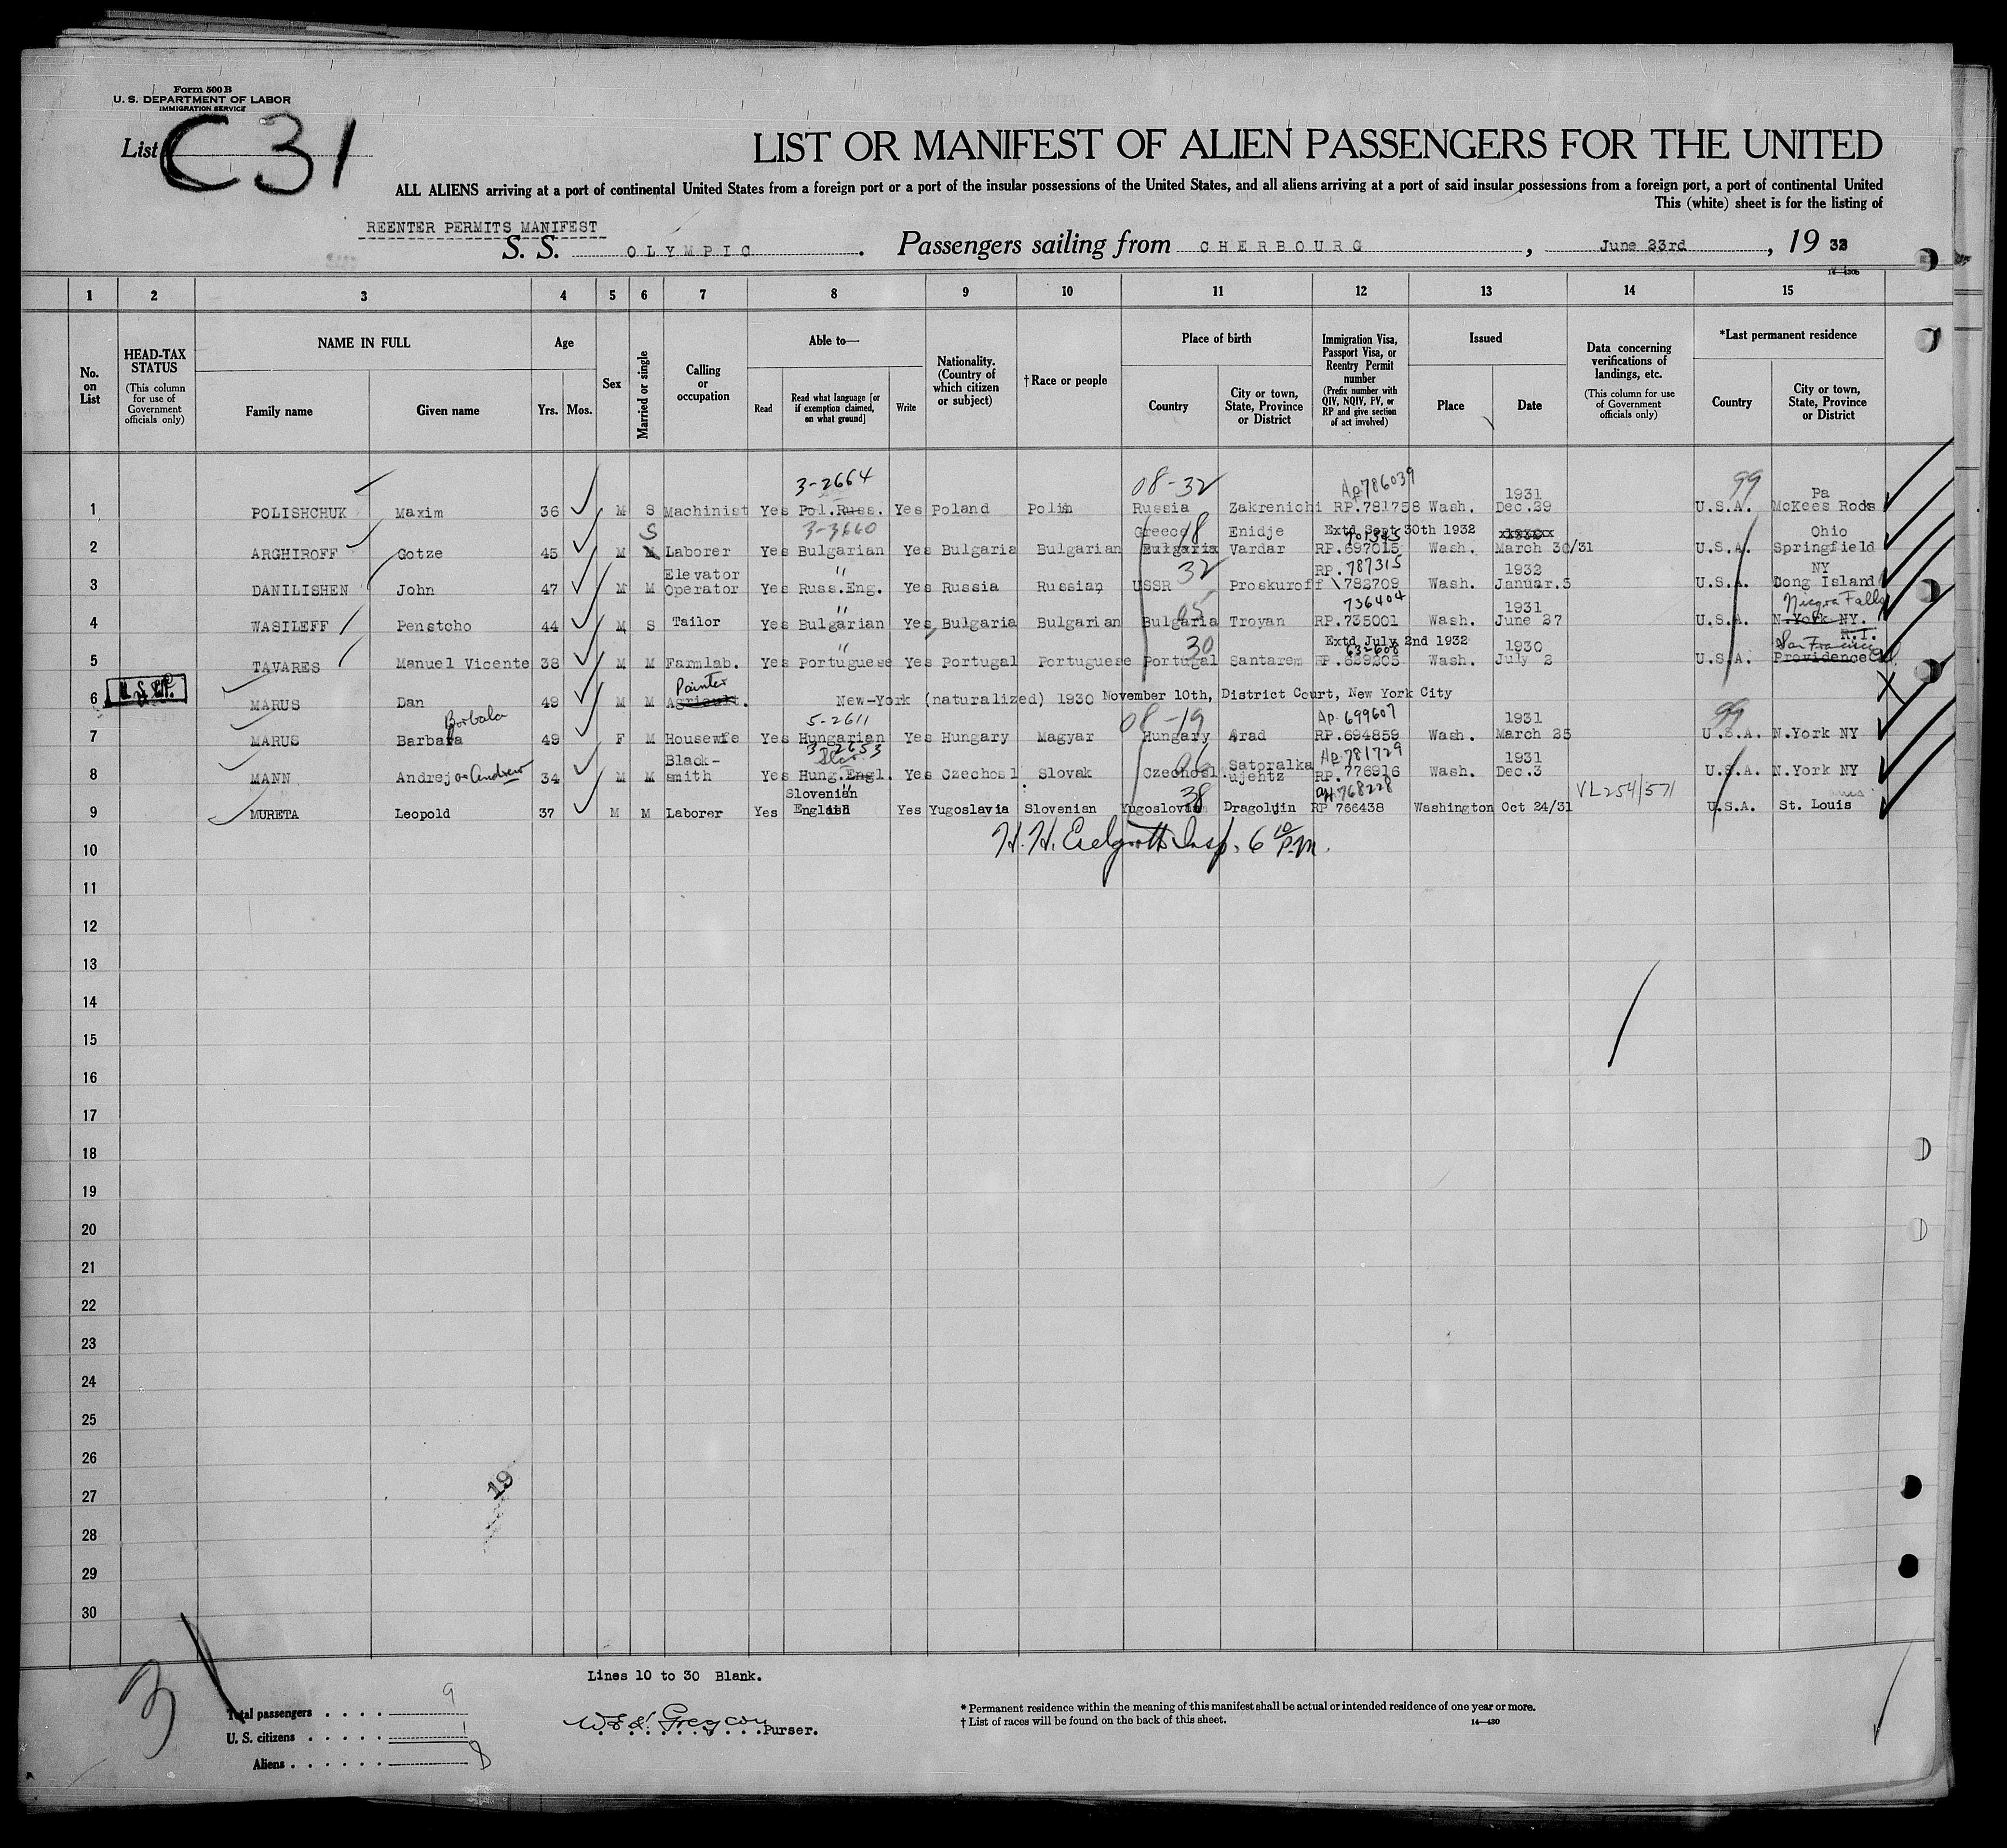 Form 500 B
U. S. DEPARTMENT OF LABOR
IMMIGRATION SERVICE
List C31
LIST OR MANIFEST OF ALIEN PASSENGERS FOR THE UNITED
ALL ALIENS arriving at a port of continental United States from a foreign port or a port of the insular possessions of the United States, and all aliens arriving at a port of said insular possessions from a foreign port, a port of continental United
This (white) sheet is for the listing of
REENTER PERMITS MANIFEST
S. S. OLYMPIC. Passengers sailing from CHERBOURG, June 23rd, 1932
1 2 3 4 5 6 7 8 9 10 11 12 13 14 15
No. on List
HEAD-TAX STATUS (This column for use of Government officials only)
NAME IN FULL
Family name Given name
Age
Yrs. Mos.
Sex
Married or single
Calling or occupation
Able to—
Read Read what language [or if exemption claimed, on what ground] Write
Nationality. (Country of which citizen or subject)
†Race or people
Place of birth
Country City or town, State, Province or District
Immigration Visa, Passport Visa, or Reentry Permit number (Prefix number with QIV, NQIV, PV, or RP and give section of act involved)
Issued
Place Date
Data concerning verifications of landings, etc. (This column for use of Government officials only)
*Last permanent residence
Country City or town, State, Province or District
3-2664 08-32 Ap 786039 1931 99 Pa
1 POLISHCHUK Maxim 36 M S Machinist Yes Pol.Russ. Yes Poland Russia Zakrenichi RP.781758 Wash. Dec.29 U.S.A. McKees Rods
S 3-3660 Greece Enidje Extd Sept 30th 1932 Ohio
2 ARGHIROFF Gotze 45 M M Laborer Yes Bulgarian Yes Bulgaria Bulgarian Bulgaria Vardar RP.697015 Wash. March 30/31 U.S.A. Springfield
Elevator " 32 RP. 787315 1932 NY
3 DANILISHEN John 47 M M Operator Yes Russ.Eng. Yes Russia Russian USSR Proskuroff 782709 Wash. Januar.5 U.S.A. Long Island
" 05 736404 1931 Niagra Falls
4 WASILEFF Penstcho 44 M S Tailor Yes Bulgarian Yes Bulgaria Bulgarian Bulgaria Troyan RP.735001 Wash. June 27 U.S.A. N.York NY.
" 30 Extd July 2nd 1932 63-608 1930 San Francisco R.I.
5 TAVARES Manuel Vicente 38 M M Farmlab. Yes Portuguese Yes Portugal Portuguese Portugal Santarem RP.629205 Wash. July 2 U.S.A. Providence
Painter
6 MARUS Dan 49 M M Agricult. New-York (naturalized) 1930 November 10th, District Court, New York City
Borbala 5-2611 08-19 Ap. 699607 1931 99
7 MARUS Barbara 49 F M Housewfe Yes Hungarian Yes Hungary Magyar Hungary Arad RP.694859 Wash. March 25 U.S.A. N.York NY
Black- 3-2653 Slov. 06 Satoralka Ap. 781729 1931
8 MANN Andrej or Andrew 34 M M smith Yes Hung.Engl. Yes Czechosl Slovak Czechosl. ujehtz RP.776916 Wash. Dec.3 U.S.A. N.York NY
Slovenian 38 768228 VL254/571
9 MURETA Leopold 37 M M Laborer Yes English Yes Yugoslavia Slovenian Yugoslovia Dragolyin RP 766438 Washington Oct 24/31 U.S.A. St. Louis
H. H. Insp. 6 10 P.M.
10
11
12
13
14
15
16
17
18
19
20
21
22
23
24
25
26
27
28
29
30
19
3
Lines 10 to 30 Blank.
Total passengers . . . . 9
U. S. citizens . . . . . 1
Aliens . . . . . . 8
Purser.
* Permanent residence within the meaning of this manifest shall be actual or intended residence of one year or more.
† List of races will be found on the back of this sheet.
14—430